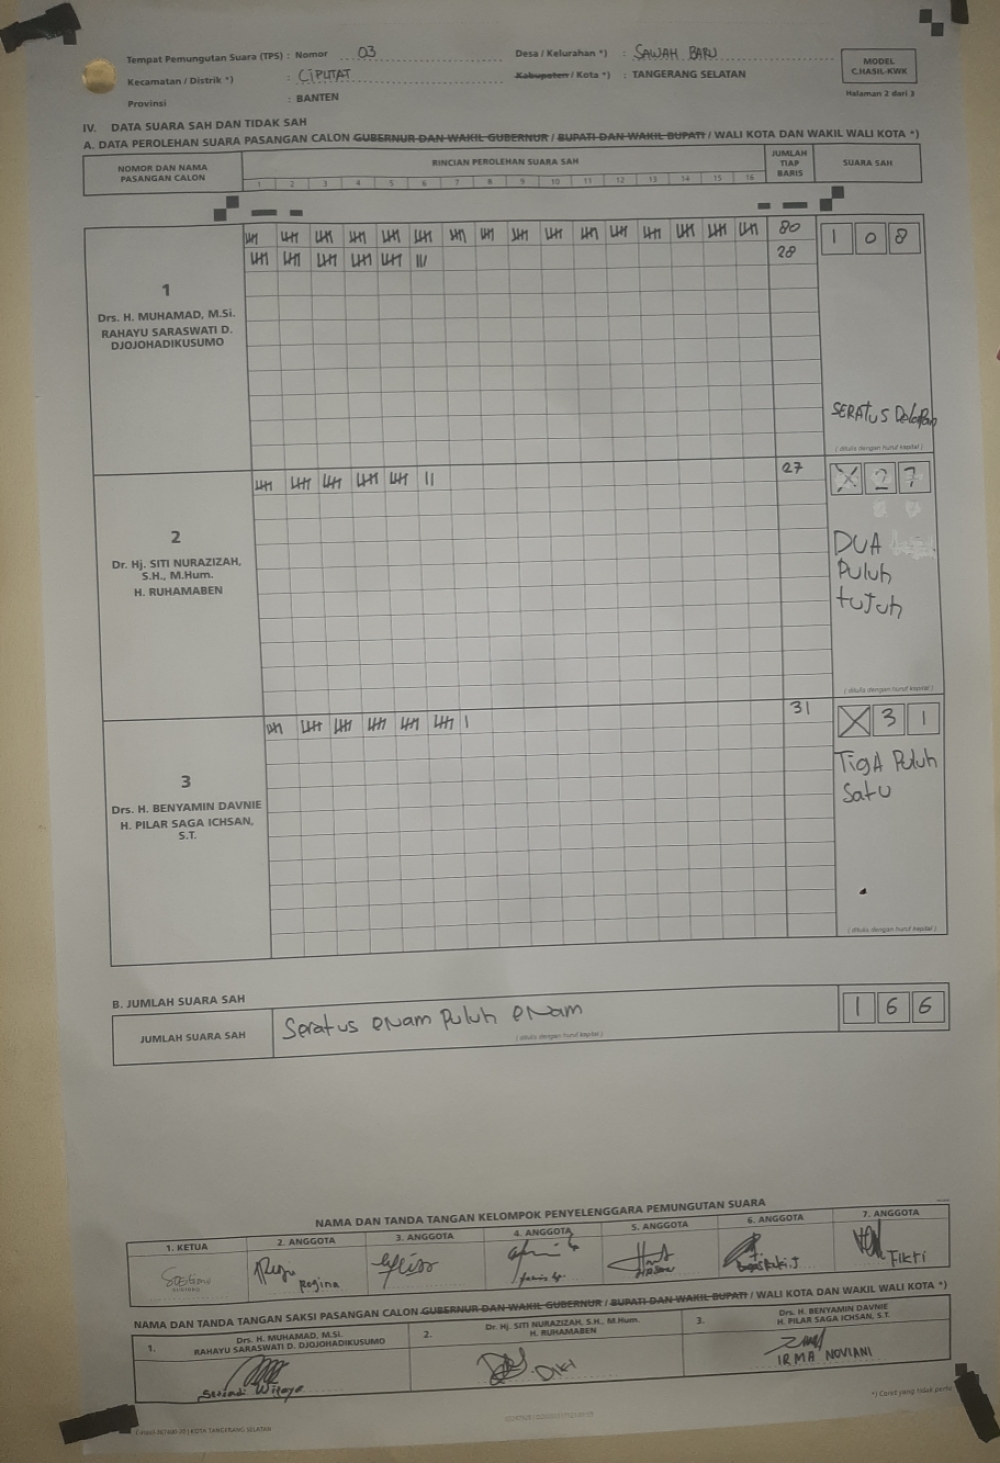 Tempat Pemungutan Suara (TPS) : Nomor 03 Desa / Kelurahan *) : SAWAH BARU
Kecamatan / Distrik *) : CIPUTAT Kabupaten / Kota *) : TANGERANG SELATAN
Provinsi : BANTEN
MODEL
C.HASIL-KWK
Halaman 2 dari 3
IV. DATA SUARA SAH DAN TIDAK SAH
A. DATA PEROLEHAN SUARA PASANGAN CALON GUBERNUR DAN WAKIL GUBERNUR / BUPATI DAN WAKIL BUPATI / WALI KOTA DAN WAKIL WALI KOTA *)
NOMOR DAN NAMA
PASANGAN CALON
RINCIAN PEROLEHAN SUARA SAH
1 2 3 4 5 6 7 8 9 10 11 12 13 14 15 16
JUMLAH
TIAP
BARIS
SUARA SAH
1
Drs. H. MUHAMAD, M.Si.
RAHAYU SARASWATI D.
DJOJOHADIKUSUMO
80
28
1 0 8
SERATUS Delapan
( ditulis dengan huruf kapital )
2
Dr. Hj. SITI NURAZIZAH,
S.H., M.Hum.
H. RUHAMABEN
27
X 2 7
DUA
Puluh
tujuh
( ditulis dengan huruf kapital )
3
Drs. H. BENYAMIN DAVNIE
H. PILAR SAGA ICHSAN,
S.T.
31
X 3 1
TigA Puluh
Satu
( ditulis dengan huruf kapital )
B. JUMLAH SUARA SAH
JUMLAH SUARA SAH
Seratus eNam Puluh eNam
( ditulis dengan huruf kapital )
1 6 6
NAMA DAN TANDA TANGAN KELOMPOK PENYELENGGARA PEMUNGUTAN SUARA
1. KETUA 2. ANGGOTA 3. ANGGOTA 4. ANGGOTA 5. ANGGOTA 6. ANGGOTA 7. ANGGOTA
Regina
Fikri
NAMA DAN TANDA TANGAN SAKSI PASANGAN CALON GUBERNUR DAN WAKIL GUBERNUR / BUPATI DAN WAKIL BUPATI / WALI KOTA DAN WAKIL WALI KOTA *)
1. Drs. H. MUHAMAD, M.SI.
RAHAYU SARASWATI D. DJOJOHADIKUSUMO
2. Dr. Hj. SITI NURAZIZAH, S.H., M.Hum.
H. RUHAMABEN
3. Drs. H. BENYAMIN DAVNIE
H. PILAR SAGA ICHSAN, S.T.
Wijaya
DIKI
IRMA NOVIANI
*) Coret yang tidak perlu
KOTA TANGERANG SELATAN